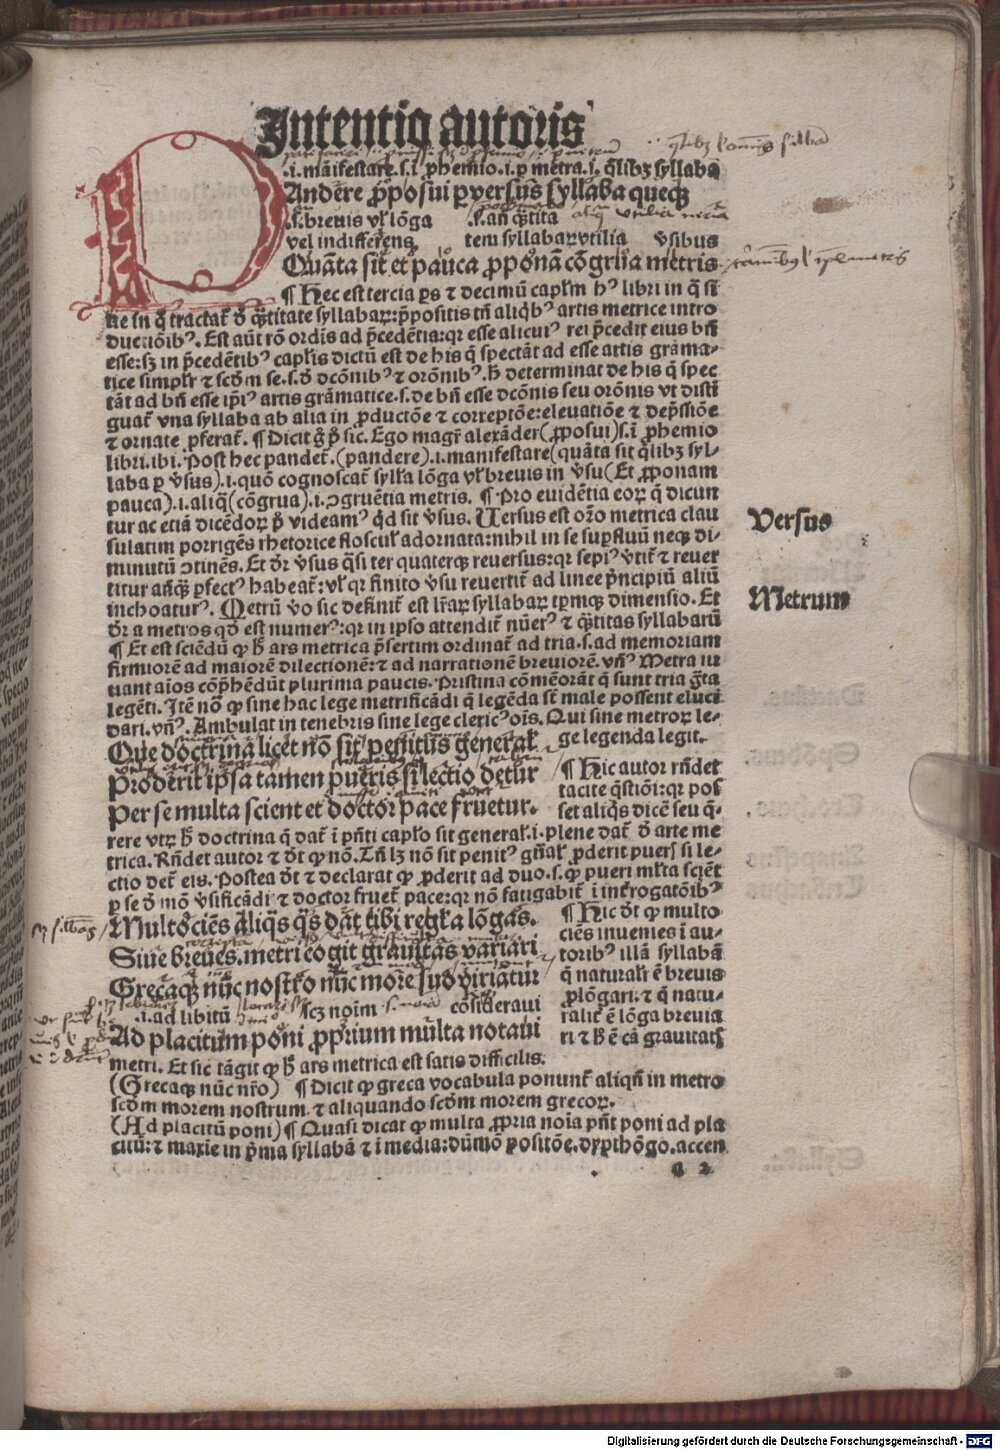 Intentio autoris
.i. māifestare .s. i ꝓhemio .i. ꝑ metra .i. q̄libꝫ syllabā
PAndere ꝓposui ꝑ versus syllaba queqꝫ
.s. breuis vl̓ lōga .s. an̄ q̄tita
vel indifferēs tem syllabaꝝ vtilia v̓sibus
Quāta sit et pauca ꝓponā cōgrua metris
¶ Hec est tercia ꝑs ⁊ decimū capl̓m hꝰ libri in q̄ si
ue in q̄ tractat̄ d̓ q̄titate syllabaꝝ: p̄positis tn̄ aliqbꝰ artis metrice intro
ductiōibꝰ. Est aūt rō ordīs ad p̄cedētia: qꝛ esse alicuiꝰ rei p̄cedit eius bn̄
esse: sꝫ in p̄cedētibꝰ capl̓is dictū est de his q̄ spectāt ad esse artis grāma-
tice simpl̓r ⁊ scd̓m se .s. d̓ dcōnibꝰ ⁊ orōnibꝰ. h̄ determinat de his q̄ spec
tāt ad bn̄ esse ip̄iꝰ artis grāmatice .s. de bn̄ esse dcōnis seu orōnis vt disti
guat̄ vna syllaba ab alia in ꝓductōe ⁊ correptōe: eleuatiōe ⁊ dep̄ssiōe
⁊ ornate ꝓferat̄. ¶ Dicit g̊ p̄ sic. Ego magr̄ alexāder (ꝓposui) .s. ī ꝓhemio
libri. ibi. Post hec pandet̄. (pandere) .i. manifestare (quāta sit q̄libꝫ syl-
laba ꝑ v̓sus) .i. quō cognoscat̄ syll̓a lōga vl̓ breuis in v̓su (Et ꝓponam
pauca) .i. aliq̄ (cōgrua) .i. ꝯgruētia metris. ¶ Pro euidētia eoꝝ q̄ dicun
tur ac etiā dicēdoꝝ p̄ videamꝰ qd̓ sit v̓sus. Uersus est orō metrica clau
sulatim porrigēs rhetorice flosculꝰ adornata: nihil in se suꝑfluū neqꝫ di-
minutū ꝯtinēs. Et d̓r v̓sus q̄si ter quaterqꝫ reuersus: qꝛ sepiꝰ v̓tit̄ ⁊ reuer
titur an̄qꝫ ꝑfectꝰ habeat̄: vl̓ qꝛ finito v̓su reuertit̄ ad linee p̄ncipiū aliū
inchoaturꝰ. Metrū v̓o sic definit̄ est lr̄aꝝ syllabaꝝ tꝑmqꝫ dimensio. Et
d̓r a metros qd̓ est numerꝰ: qꝛ in ipso attendit̄ nūerꝰ ⁊ q̄titas syllabarū
¶ Et est sciēdū ꝙ h̄ ars metrica p̄sertim ordinat̄ ad tria .s. ad memoriam
firmiorē ad maiorē dilectionē: ⁊ ad narrationē breuiorē. vn̄ꝰ Metra iu
uant aīos cōp̄hēdūt plurima paucis. Pristina cōmēorāt q̄ sunt tria gr̄ta
legēti. Itē nō ꝙ sine hac lege metrificādi q̄ legēda st̄ male possent eluci
dari. vn̄ꝰ. Ambulat in tenebris sine lege clericꝰ oīs. Qui sine metroꝝ le-
ge legenda legit.
Que doctrina licet nō sit penitus general̓
Proderit ipsa tamen pueris si lectio detur
Per se multa scient et doctor pace fruetur.
¶ Hic autor rn̄det
tacite q̄stiōi: qꝛ pos
set aliqs dicē seu q̄-
rere vtꝝ h̄ doctrina q̄ dat̄ ī pn̄ti caplo sit general̓ .i. plene dat̄ d̓ arte me
trica. Rn̄det autor ⁊ d̓t ꝙ nō. Tn̄ lꝫ nō sit penitꝰ gn̄al̓ ꝓderit puer̄ si le-
ctio det̄ eis. Postea d̓t ⁊ declarat ꝙ ꝓderit ad duo .s. ꝙ pueri ml̓ta sciēt
ꝑ se d̓ mō v̓sificādi ⁊ doctor fruet̄ pace: qꝛ nō fatigabit̄ ī int̓rogatōibꝰ
Multociēs aliqs qs dāt tibi regl̓a lōgas.
Siue breues. metri cogit grauitas variari
Grecaqꝫ nūc nostro nūc more suo variātur
.i. ad libitū scꝫ noīm cōsideraui
Ad placitum poni ꝓprium multa notaui
¶ Hic d̓t ꝙ multo
ciēs inuenies ī au-
toribꝰ illā syllabā
q̄ natural̓r ē breuis
ꝓlōgari: ⁊ q̄ natu-
ral̓r ē lōga breuia
ri ⁊ h̄ ē cā grauitatꝭ
metri. Et sic tāgit ꝙ h̄ ars metrica est satis difficilis.
(Grecaqꝫ nūc nr̄o) ¶ Dicit ꝙ greca vocabula ponunt̄ aliqn̄ in metro
scd̓m morem nostrum ⁊ aliquando scd̓m morem grecoꝝ.
(Ad placitū poni) ¶ Quasi dicat ꝙ multa ꝓpria noīa pn̄t poni ad pla
citū: ⁊ maxīe in p̄ma syllabā ⁊ ī media: dūmō positōe. dypthōgo. accen
a 2
Versus
Metrum
Digitalisierung gefördert durch die Deutsche Forschungsgemeinschaft - DFG